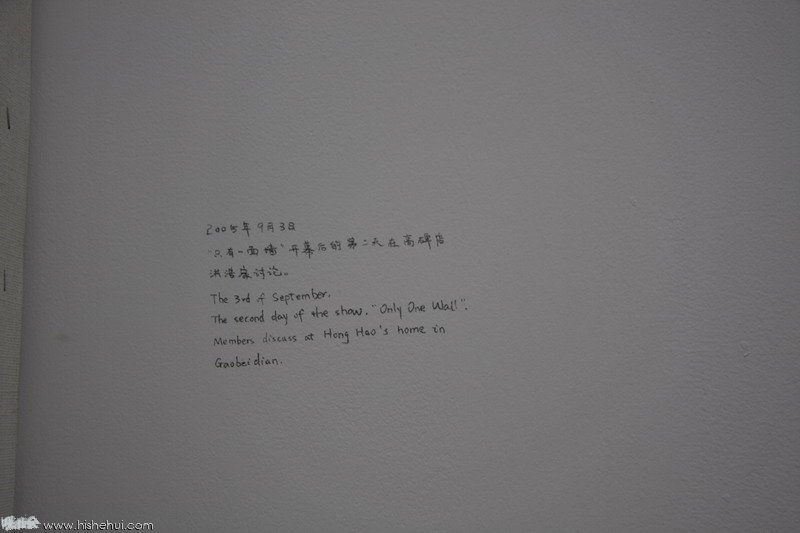 2005年9月3日
"只有一面墙"开幕后的第二天在高碑店
洪浩家讨论。
The 3rd of September,
The second day of the show, "Only One Wall".
Members discuss at Hong Hao's home in
Gaobeidian.
www.hishehui.com